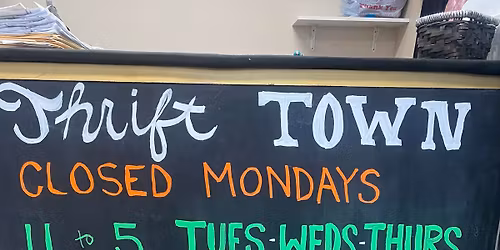 Thrift TOWN
CLOSED MONDAYS
11 to 5 TUES-WEDS-THURS